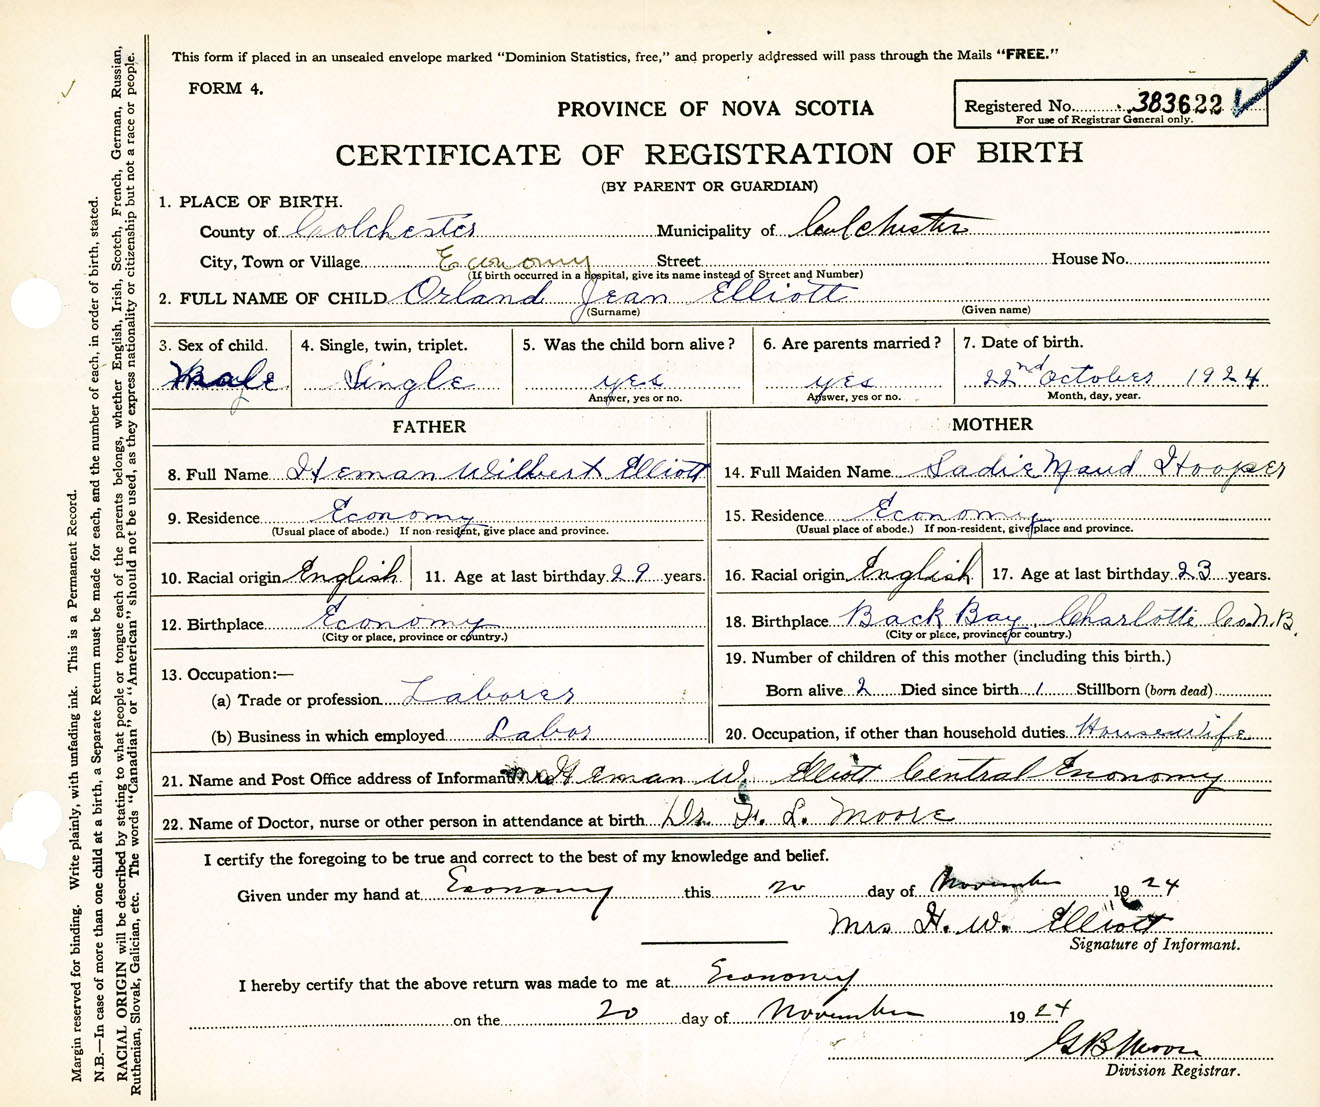 This form if placed in an unsealed envelope marked “Dominion Statistics, free,” and properly addressed will pass through the Mails “FREE.”
FORM 4.
PROVINCE OF NOVA SCOTIA
Registered No. 383622
For use of Registrar General only.
CERTIFICATE OF REGISTRATION OF BIRTH
(BY PARENT OR GUARDIAN)
1. PLACE OF BIRTH.
County of Colchester Municipality of Colchester
City, Town or Village Economy Street House No.
(If birth occurred in a hospital, give its name instead of Street and Number)
2. FULL NAME OF CHILD Orland Jean Elliott
(Surname) (Given name)
3. Sex of child. 4. Single, twin, triplet. 5. Was the child born alive? 6. Are parents married? 7. Date of birth.
Male Single yes yes 22nd October 1924
Answer, yes or no. Answer, yes or no. Month, day, year.
FATHER MOTHER
8. Full Name Heman Wilbert Elliott 14. Full Maiden Name Sadie Maud Hooper
9. Residence Economy 15. Residence Economy
(Usual place of abode.) If non-resident, give place and province. (Usual place of abode.) If non-resident, give place and province.
10. Racial origin English 11. Age at last birthday 29 years. 16. Racial origin English 17. Age at last birthday 23 years.
12. Birthplace Economy 18. Birthplace Back Bay, Charlotte Co. N.B.
(City or place, province or country.) (City or place, province or country.)
13. Occupation:— 19. Number of children of this mother (including this birth.)
(a) Trade or profession Laborer Born alive 2 Died since birth 1 Stillborn (born dead)
(b) Business in which employed Labor 20. Occupation, if other than household duties Housewife
21. Name and Post Office address of Informant Mrs Heman W. Elliott Central Economy
22. Name of Doctor, nurse or other person in attendance at birth Dr. F. L. Moore
I certify the foregoing to be true and correct to the best of my knowledge and belief.
Given under my hand at Economy this 20 day of November 1924
Mrs H. W. Elliott
Signature of Informant.
I hereby certify that the above return was made to me at Economy
on the 20 day of November 1924
G B Moore
Division Registrar.
Margin reserved for binding. Write plainly, with unfading ink. This is a Permanent Record.
N.B.—In case of more than one child at a birth, a Separate Return must be made for each, and the number of each, in order of birth, stated.
RACIAL ORIGIN will be described by stating to what people or tongue each of the parents belongs, whether English, Irish, Scotch, French, German, Russian,
Ruthenian, Slovak, Galician, etc. The words “Canadian” or “American” should not be used, as they express nationality or citizenship but not a race or people.